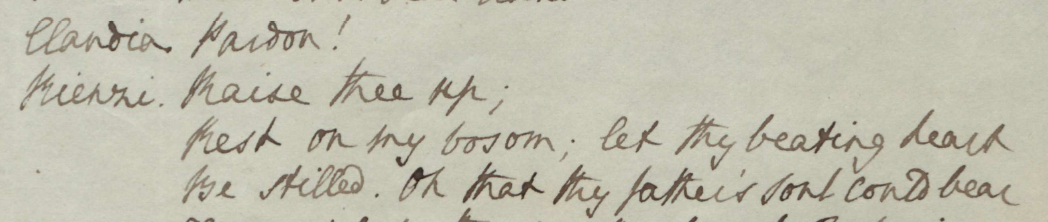 Claudia. Pardon!
Rienzi. Raise thee up;
Rest on my bosom; let thy beating heart
Be stilled. Oh that thy father's soul could bear